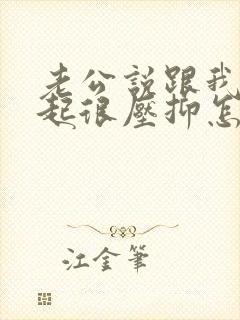 老公説跟我
起很壓抑怎
江金筆